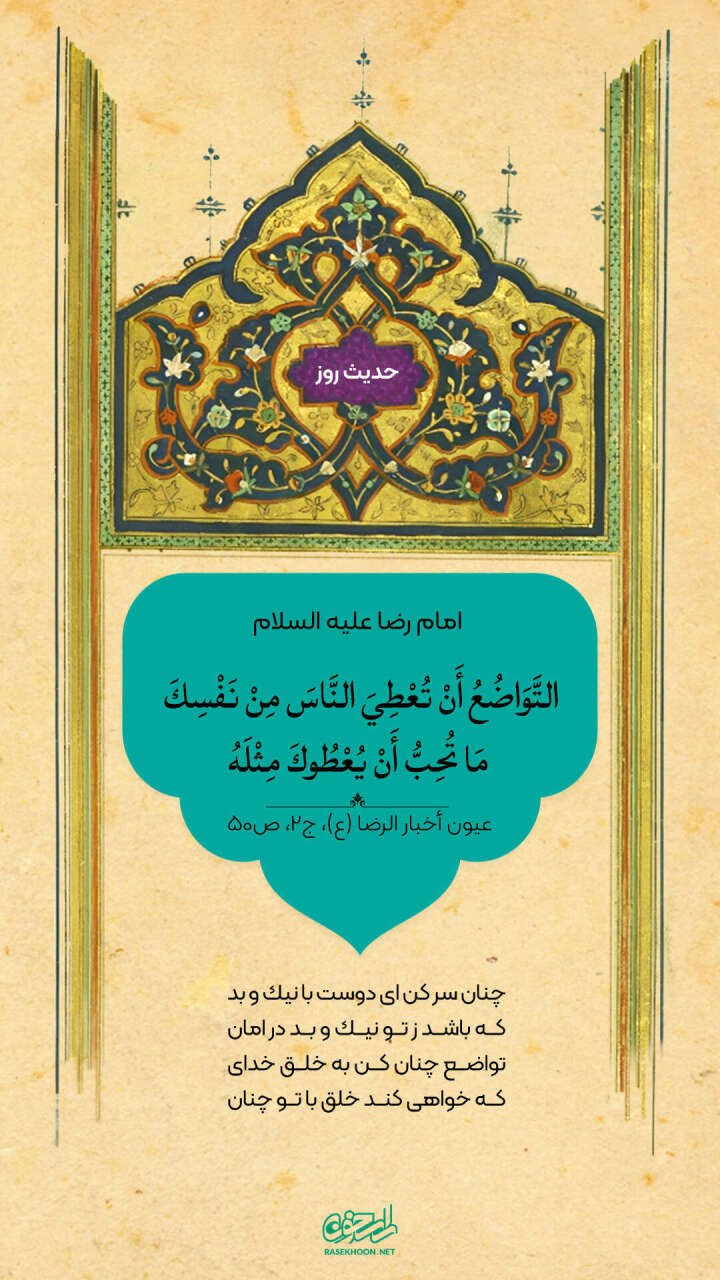 حدیث روز
امام رضا علیه السلام
التَّوَاضُعُ أَنْ تُعْطِيَ النَّاسَ مِنْ نَفْسِكَ
مَا تُحِبُّ أَنْ يُعْطُوكَ مِثْلَهُ
عیون أخبار الرضا (ع)، ج۲، ص۵۰
چنان سر کن ای دوست با نیك و بد
کـه باشـد ز تـو نیـك و بـد در امان
تواضـع چنان کـن به خلـق خدای
کـه خواهی کنـد خلق با تـو چنان
راسخون
RASEKHOON.NET